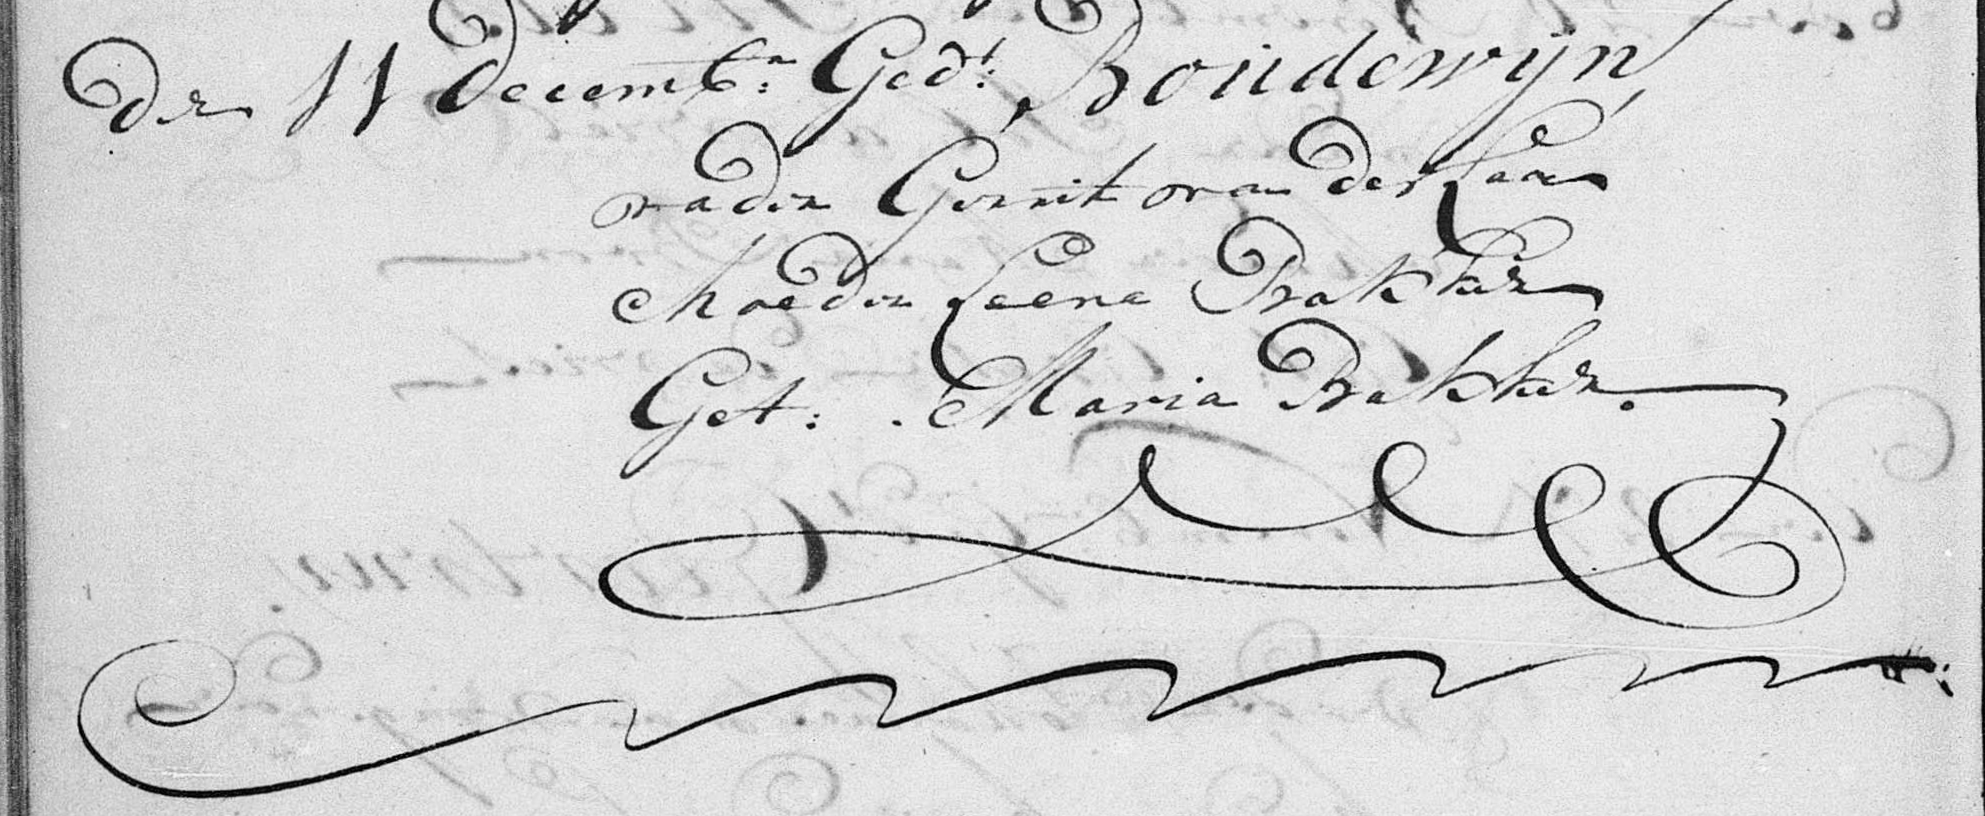 Den 11 Decemb:r Ged:t Boudewyn,
vader Gerrit van der Laan
Moeder Leena Bakker
Get: Maria Bakker.